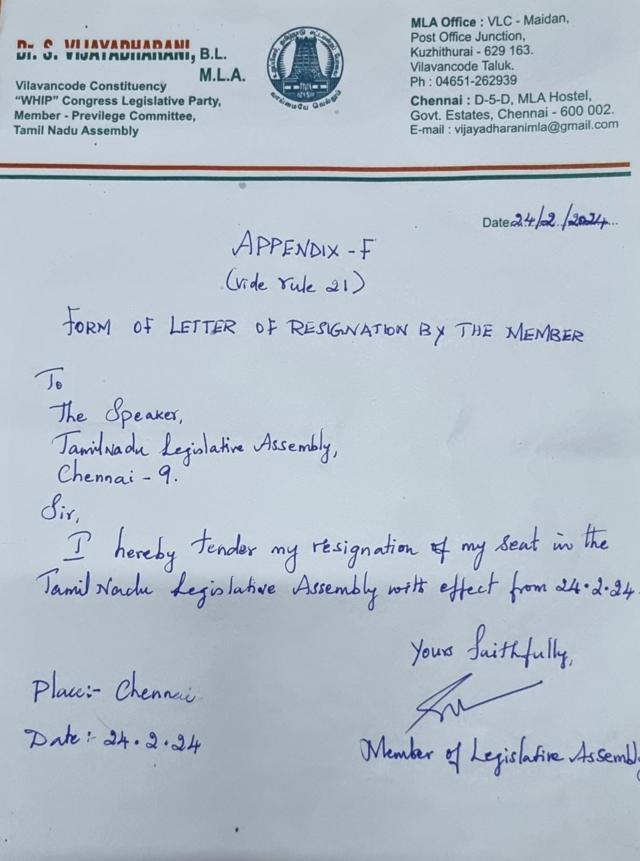 Dr. S. VIJAYADHARANI, B.L.
M.L.A.
Vilavancode Constituency
"WHIP" Congress Legislative Party,
Member - Previlege Committee,
Tamil Nadu Assembly
MLA Office : VLC - Maidan,
Post Office Junction,
Kuzhithurai - 629 163.
Vilavancode Taluk.
Ph : 04651-262939
Chennai : D-5-D, MLA Hostel,
Govt. Estates, Chennai - 600 002.
E-mail : vijayadharanimla@gmail.com
Date 24/2/2024...
APPENDIX - F
(vide rule 21)
FORM OF LETTER OF RESIGNATION BY THE MEMBER
To
The Speaker,
TamilNadu Legislative Assembly,
Chennai - 9.
Sir,
I hereby tender my resignation of my seat in the
Tamil Nadu Legislative Assembly with effect from 24.2.24.
Yours faithfully,
Place:- Chennai
Date:- 24.2.24
Member of Legislative Assembly